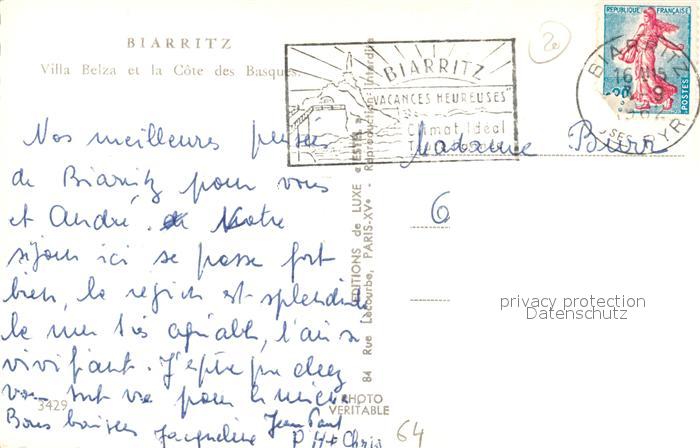 BIARRITZ
Villa Belza et la Côte des Basques.
BIARRITZ
"VACANCES HEUREUSES"
Climat Idéal
REPUBLIQUE FRANÇAISE
POSTES
BIARRITZ
16
Nos meilleures pensées
de Biarritz pour vous
et André. Notre
séjour ici se passe fort
bien, la région est splendide
la mer très agréable, l'air
vivifiant. J'espère que chez
vous tout va pour le mieux
Bons baisers Jacqueline Jean Paul
P H + Chris
Madame Burr
6
EDITIONS de LUXE "ESTEL" - Reproduction interdite
84 Rue Lecourbe, PARIS-XVe
PHOTO
VERITABLE
3429
64
20
privacy protection
Datenschutz